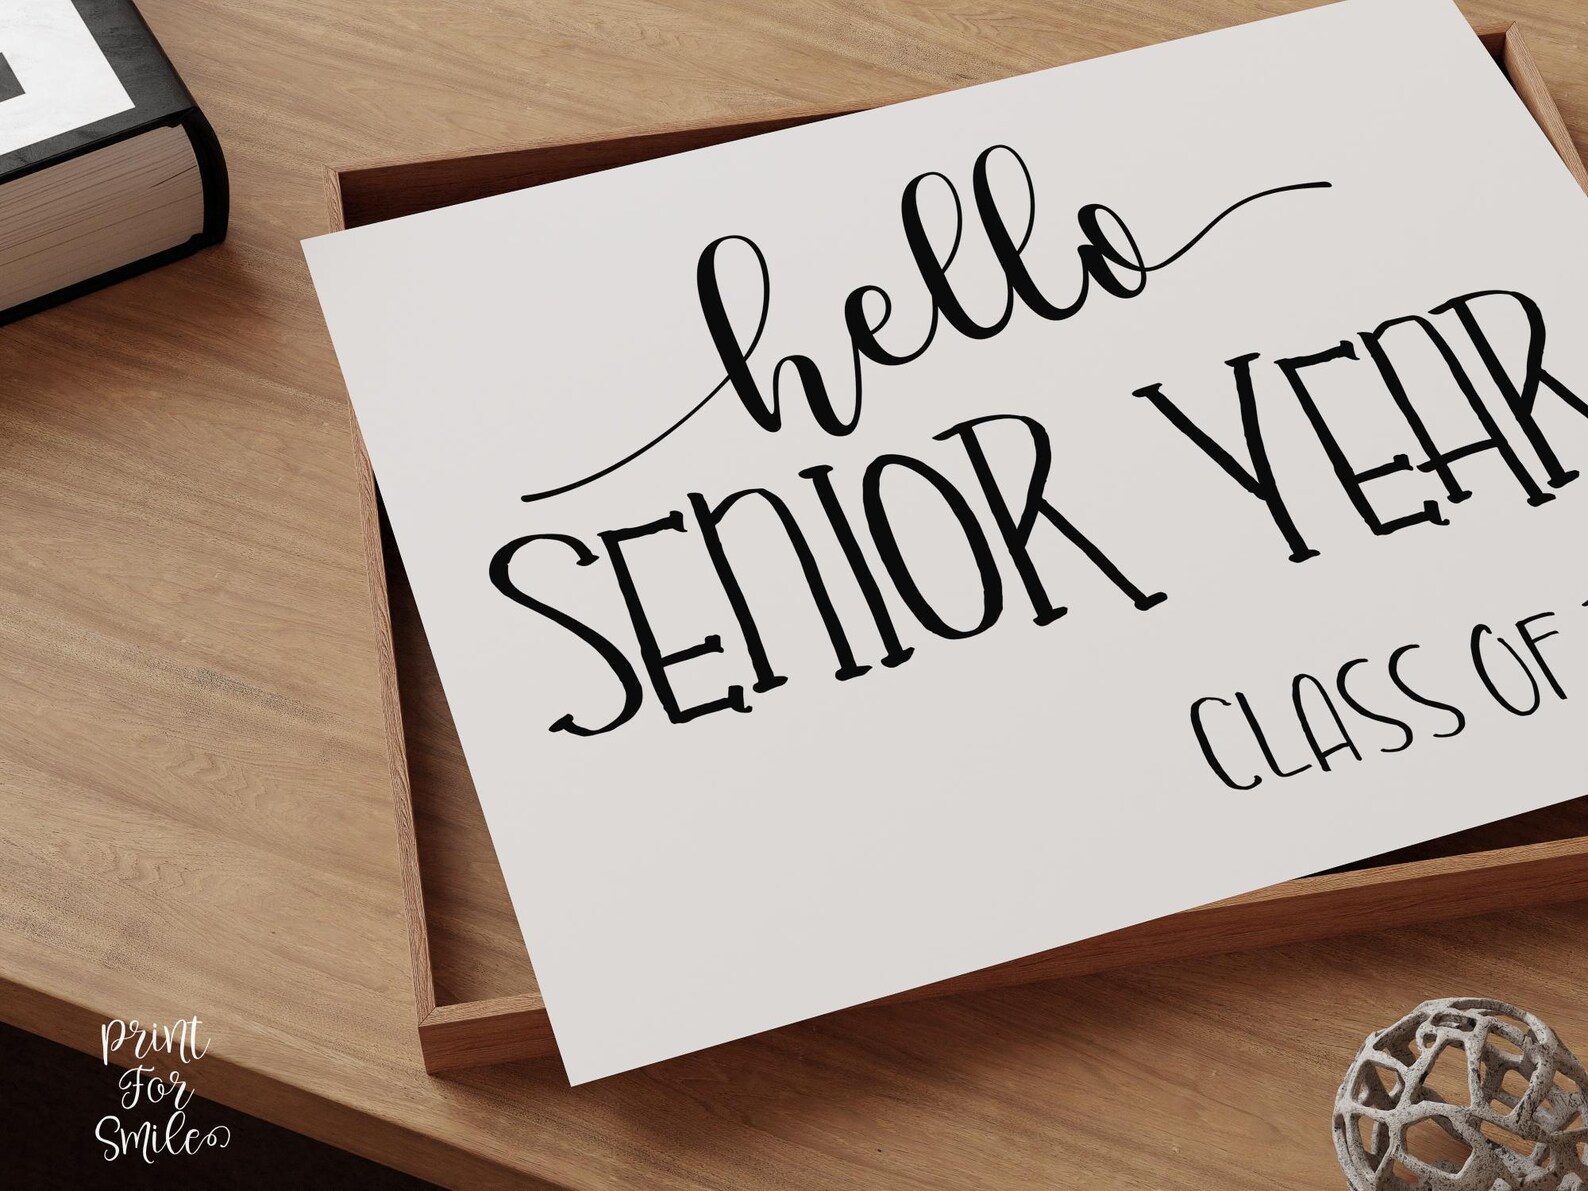 hello
SENIOR YEAR
CLASS OF
Print
For
Smile